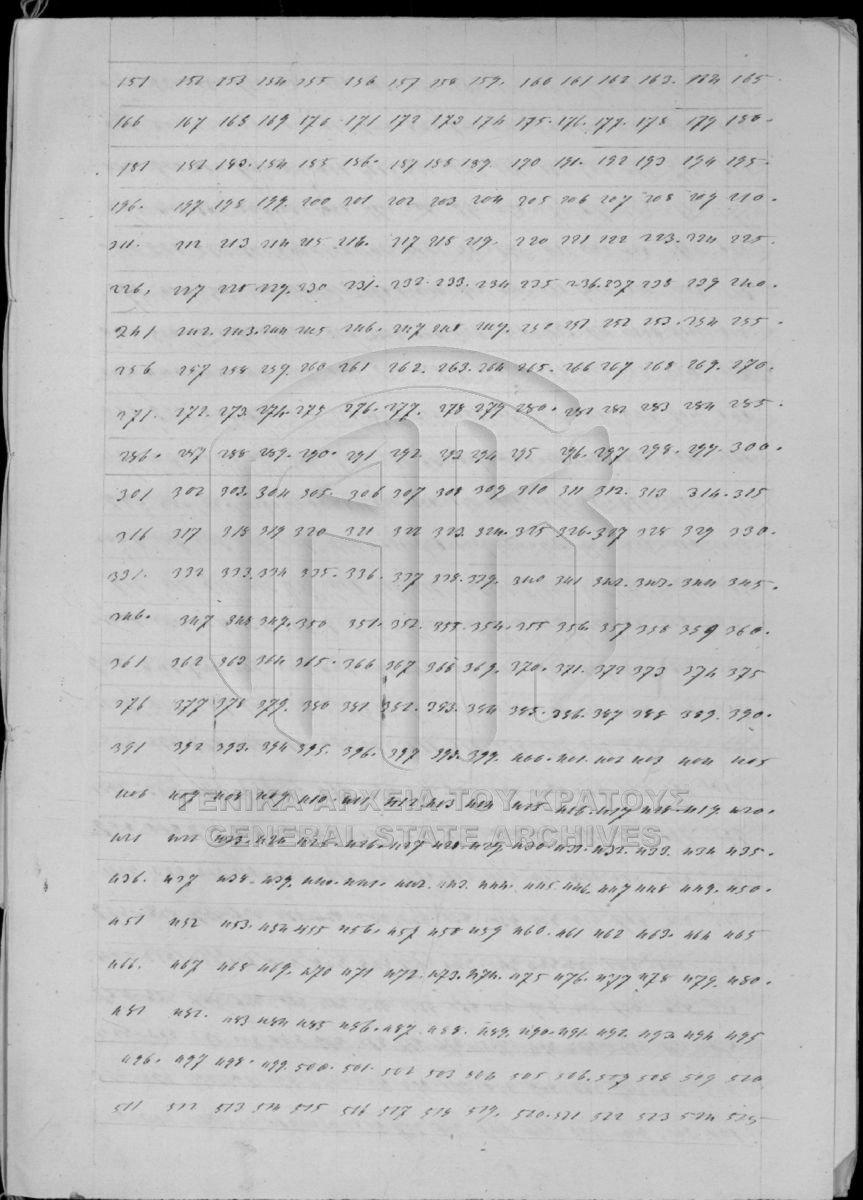 151 152 153 154 155 156 157 158 159. 160 161 162 163. 164 165
166 167 168 169 170 171 172 173 174 175. 176. 177. 178 179 180.
181 182 183. 184 185 186. 187 188 189. 190 191. 192 193 194 195.
196. 197 198 199. 200 201 202 203 204 205 206 207 208 209 210.
211. 212 213 214 215 216. 217 218 219. 220 221 222 223. 224 225
226, 227 228 229. 230 231. 232. 233. 234 235 236. 237 238 239 240.
241 242. 243. 244 245 246. 247 248 249. 250 251 252 253. 254 255
256 257 258 259. 260 261 262. 263. 264 265. 266 267 268 269. 270.
271. 272. 273. 274. 275 276. 277. 278 279 280. 281 282 283 284 285.
286. 287 288 289. 290. 291 292. 293 294 295 296. 297 298. 299. 300.
301 302 303. 304 305. 306 307 308 309 310 311 312. 313 314. 315
316 317 318 319 320 321 322 323. 324. 325 326. 327 328 329 330.
331. 332 333. 334 335. 336. 337 338. 339. 340 341 342. 343. 344 345.
346. 347 348 349. 350 351. 352. 353. 354. 355 356. 357 358 359 360.
361 362 363 364 365. 366 367 368 369. 370. 371. 372 373 374 375
376 377 378 379. 380 381 382. 383. 384 385. 386. 387 388 389. 390.
391 392 393. 394 395. 396. 397 398. 399. 400. 401. 402 403 404 405
406 407 408 409 410. 411 412. 413 414 415 416. 417 418. 419. 420.
ΓΕΝΙΚΑ ΑΡΧΕΙΑ ΤΟΥ ΚΡΑΤΟΥΣ
GENERAL STATE ARCHIVES
421 422 423. 424 425. 426. 427 428. 429. 430. 431. 432. 433. 434 435.
436. 437 438. 439. 440. 441. 442. 443. 444. 445. 446. 447 448 449. 450.
451 452 453. 454 455 456. 457 458 459 460. 461 462 463. 464 465
466. 467 468 469. 470 471 472. 473. 474. 475 476. 477 478 479. 480.
481 482. 483 484 485 486. 487. 488. 489. 490. 491. 492. 493. 494 495
496. 497 498. 499. 500. 501. 502 503 504 505 506. 507 508 509 510
511 512 513 514 515 516 517 518 519. 520. 521 522 523 524 525